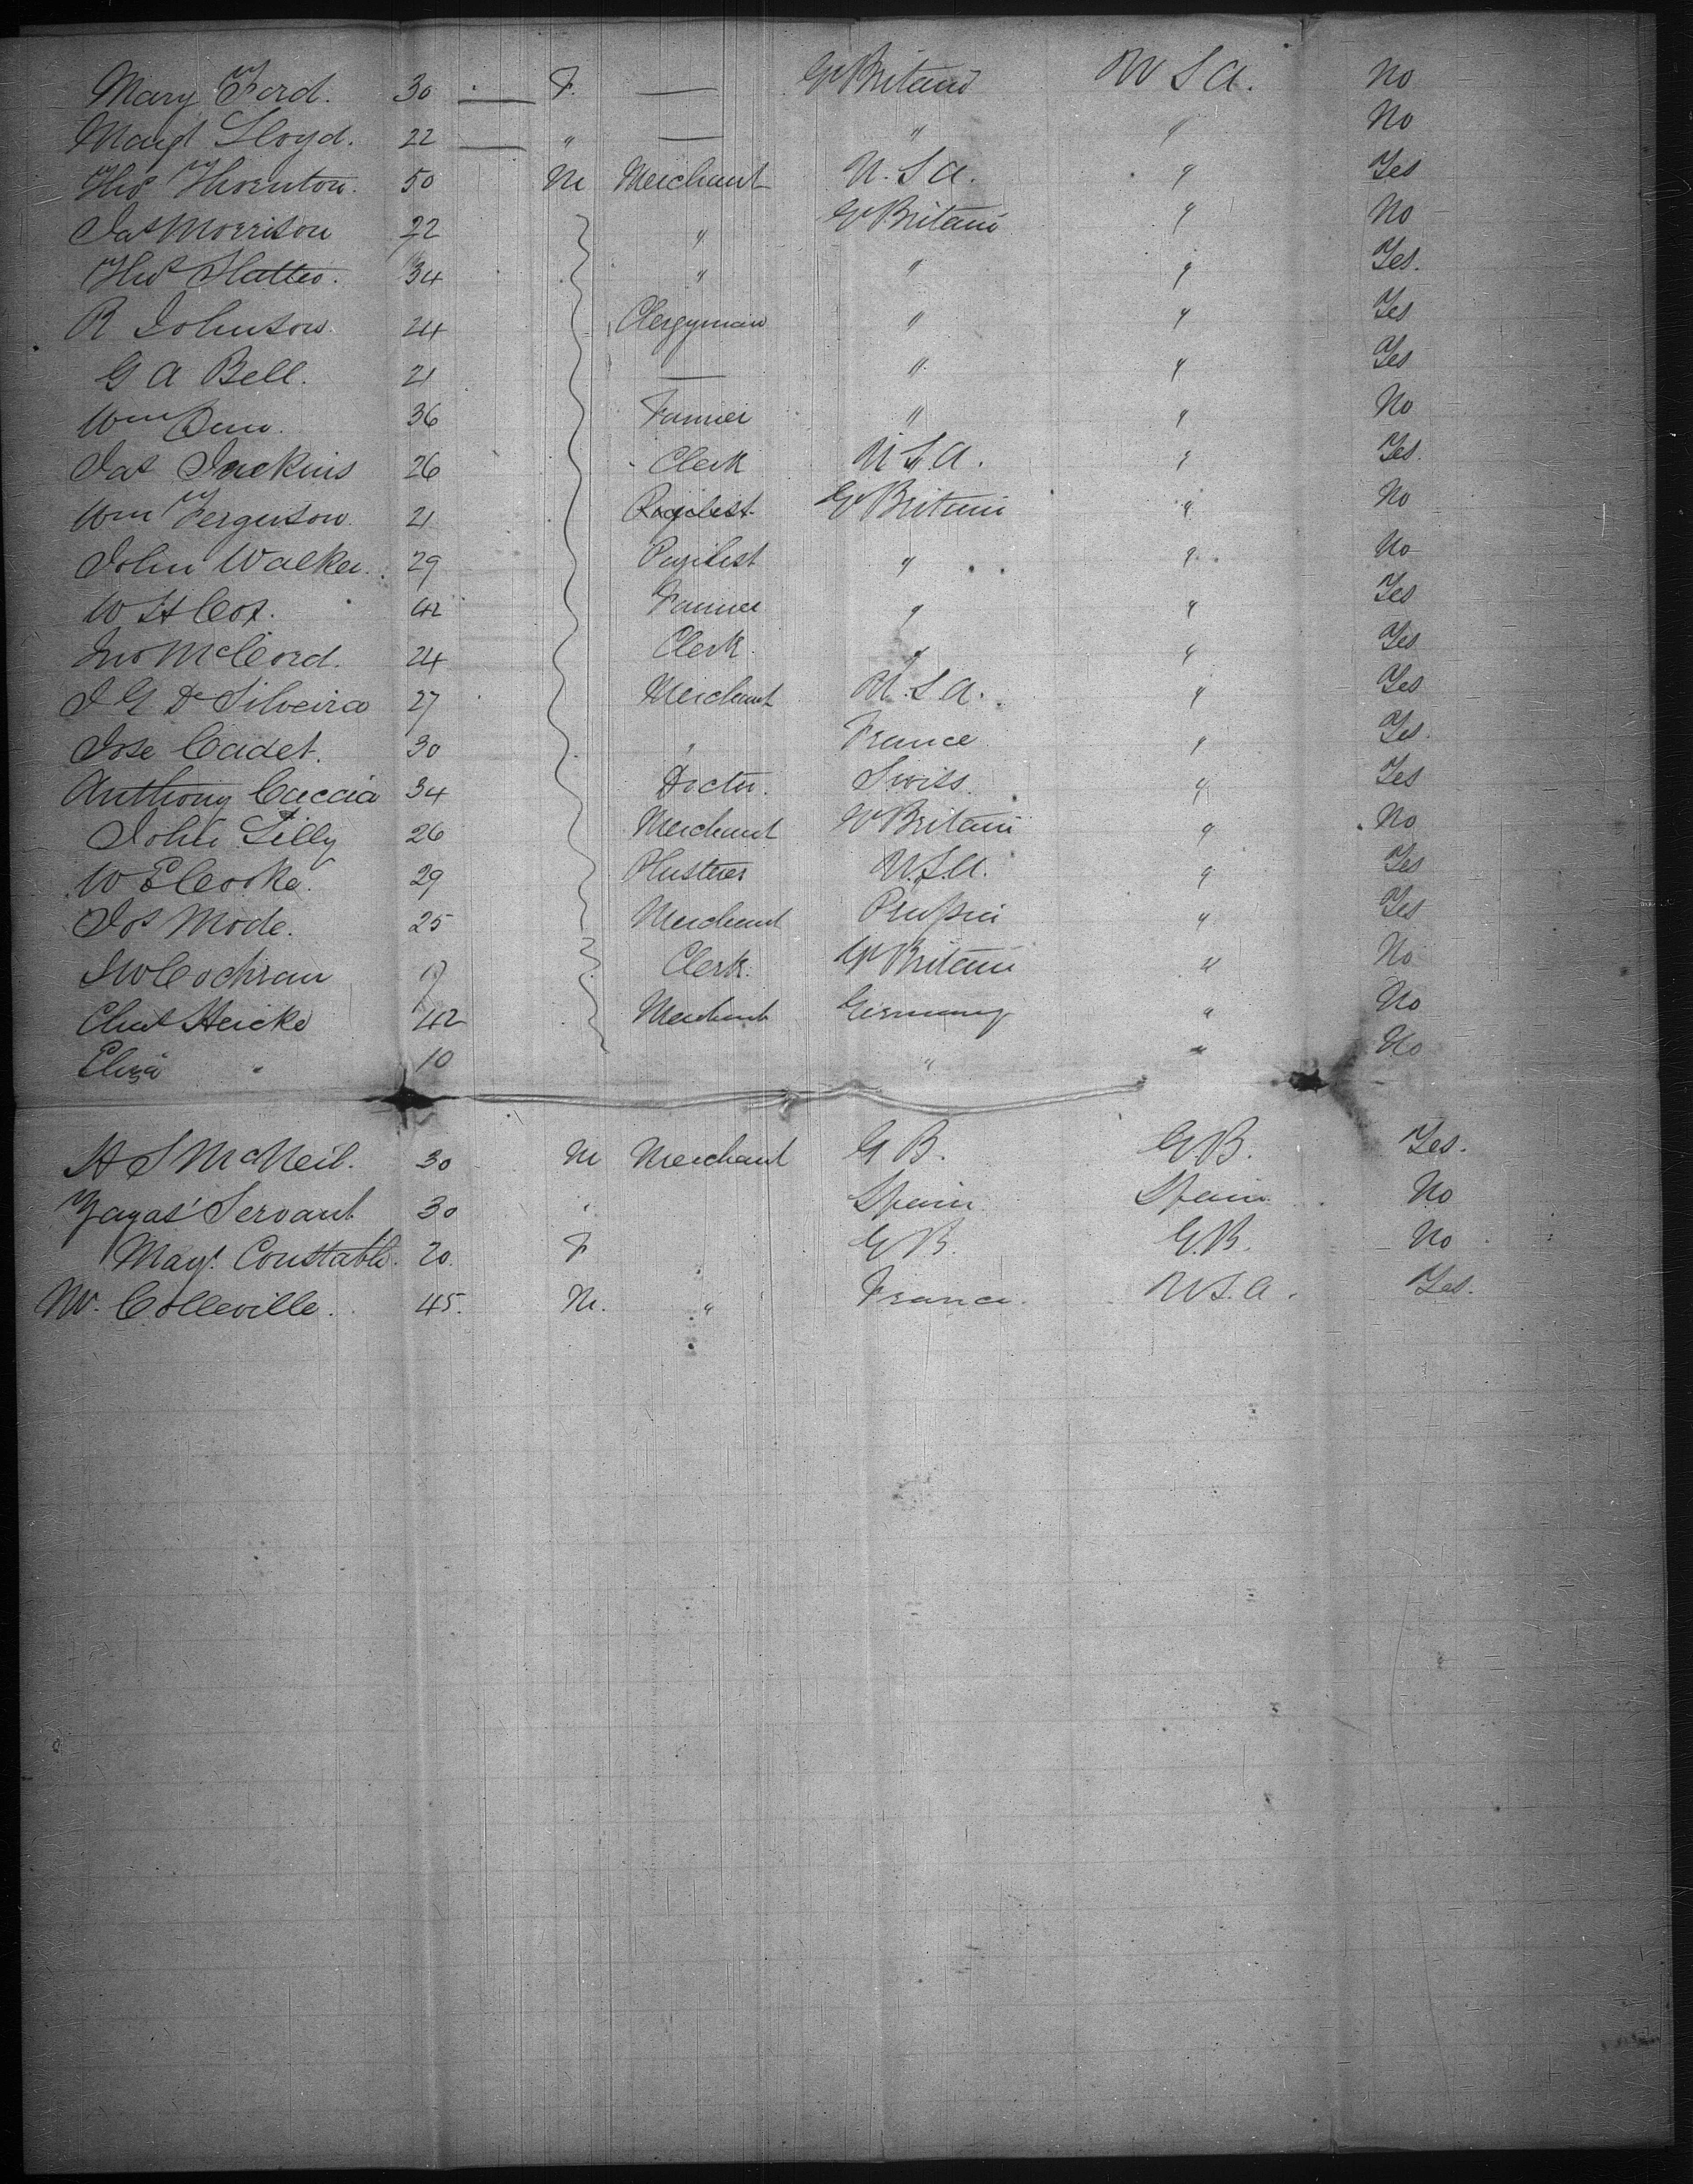 Mary Ford. 30 — F. — Gt Britain U S A. No
Margt Lloyd. 22 — " — " " No
Thos Thornton. 50 M Merchant U. S A. " Yes
Jas Morrison 22 " Gt Britain " No
Thos Slatter. 34 " " " Yes.
R Johnson 24 Clergyman " " Yes
G A Bell. 21 — " " Yes
Wm 36 Farmer " " No
Jas Jenkins 26 Clerk U S A. " Yes.
Wm Ferguson. 21 Pugilist Gt Britain " No
John Walker. 29 Pugilist " " No
W H Cox. 42 Farmer " " Yes
Jno McCord. 24 Clerk. " " Yes
J G De Silveira 27 Merchant U. S. A. " Yes
Jose Cadet. 30 " France " Yes.
Anthony Caccia 34 Doctor. Swiss. " Yes
John Lilly 26 Merchant Gt Britain " No
W E Cooke. 29 U.S.A. " Yes
Jos Mode. 25 Merchant Prussia " Yes
J W Cochran 17 Clerk. Gt Britain " No
Chas Heicke 42 Merchant Germany " No
Eliza " 10 " " No
H S McNeil. 30 M Merchant G B. G B. Yes.
Zayas' Servant 30 " Spain Spain No
Mayt. Constable. 20. F G B. G.B. No
M. Colleville. 45. M. " France. U S. A. Yes.